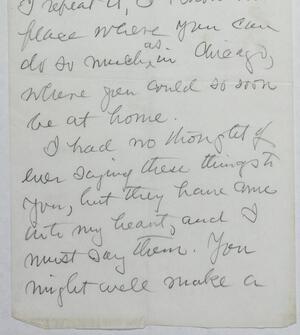 I repeat it, I know no
place where you can
do so much as in Chicago,
where you could so soon
be at home.
I had no thought of
ever saying these things to
you, but they have come
into my heart, and I
must say them. You
might well make a